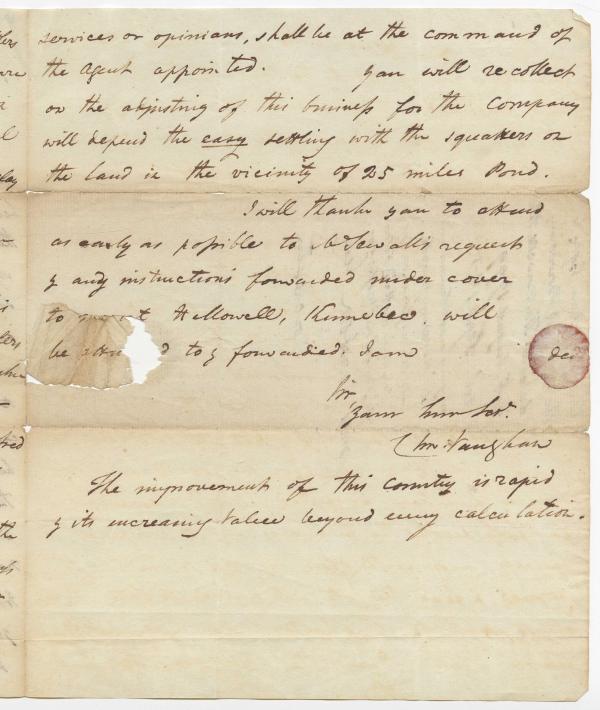 services or opinions, shall be at the command of
the Agent appointed. You will recollect
on the adjusting of this business for the Company
will depend the easy settling with the squatters on
the land in the vicinity of 25 miles Pond.
I will thank you to attend
as early as possible to Mr Sewall's request
& any instructions forwarded under cover
to me at Hallowell, Kennebec. will
be d to & forwarded. I am dear
Sir
Your hum Sert.
Chas Vaughan
The improvement of this Country is rapid
& its increasing value beyond every calculation.